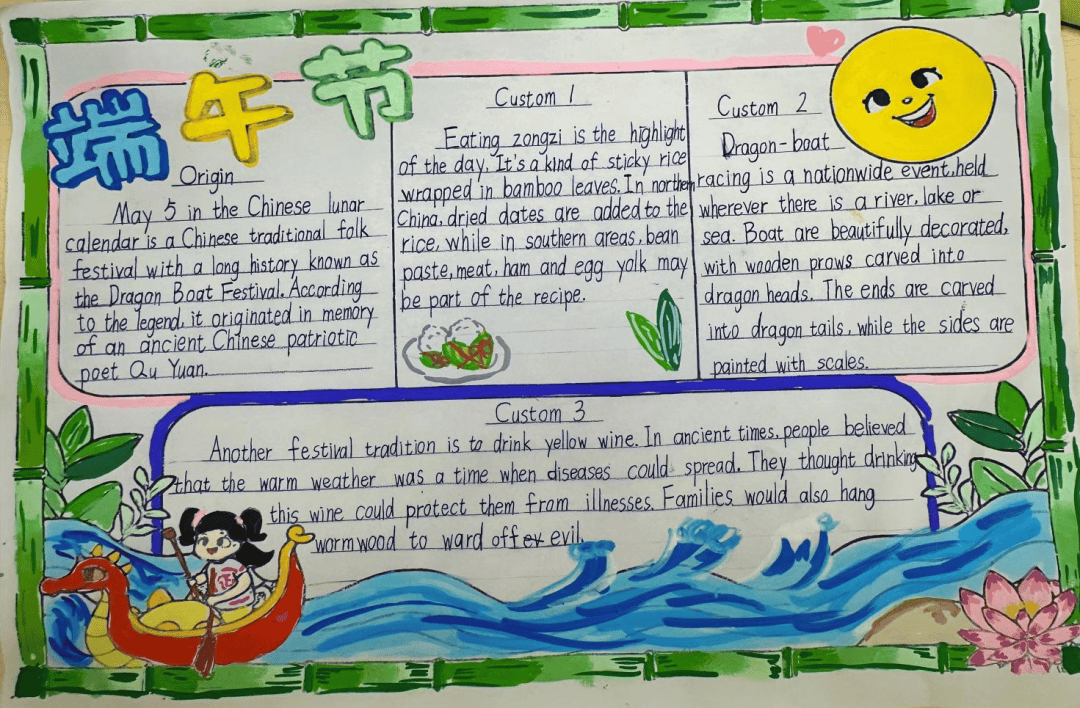 端午节
Origin
May 5 in the Chinese lunar
calendar is a Chinese traditional folk
festival with a long history known as
the Dragon Boat Festival. According
to the legend, it originated in memory
of an ancient Chinese patriotic
poet Qu Yuan.
Custom 1
Eating zongzi is the highlight
of the day. It's a kind of sticky rice
wrapped in bamboo leaves. In northern
China, dried dates are added to the
rice, while in southern areas, bean
paste, meat, ham and egg yolk may
be part of the recipe.
Custom 2
Dragon-boat
racing is a nationwide event, held
wherever there is a river, lake or
sea. Boat are beautifully decorated,
with wooden prows carved into
dragon heads. The ends are carved
into dragon tails, while the sides are
painted with scales.
Custom 3
Another festival tradition is to drink yellow wine. In ancient times, people believed
that the warm weather was a time when diseases could spread. They thought drinking
this wine could protect them from illnesses. Families would also hang
wormwood to ward off evil.